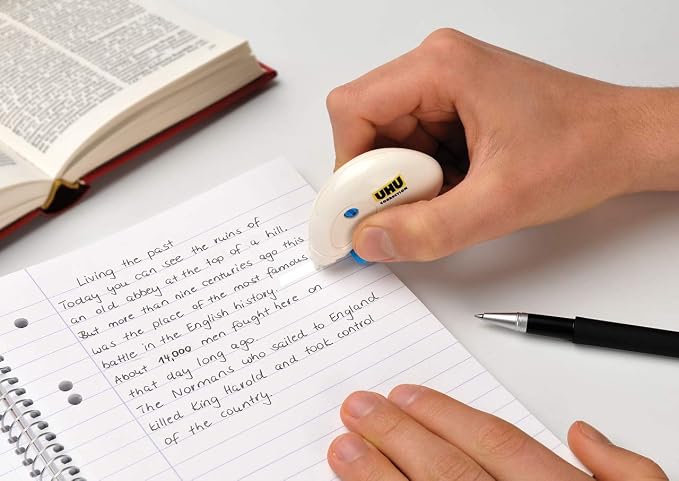 UHU
CORRECTION
Living the past
Today you can see the ruins of
an old abbey at the top of a hill.
But more than nine centuries ago this
was the place of the most famous
battle in the English history.
About 14,000 men fought here on
that day long ago.
The Normans who sailed to England
killed King Harold and took control
of the country.